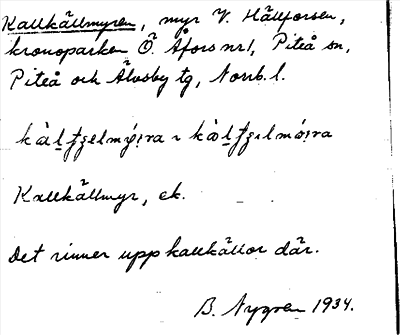 Kallkällmyren, myr V. Hällforsen,
kronoparken Ö. Åfors nr 1, Piteå sn,
Piteå och Älvsby tg, Norrb. l.
Kallkällmyr, ek.
Det rinner upp kallkällor där.
B. Nygren 1934.